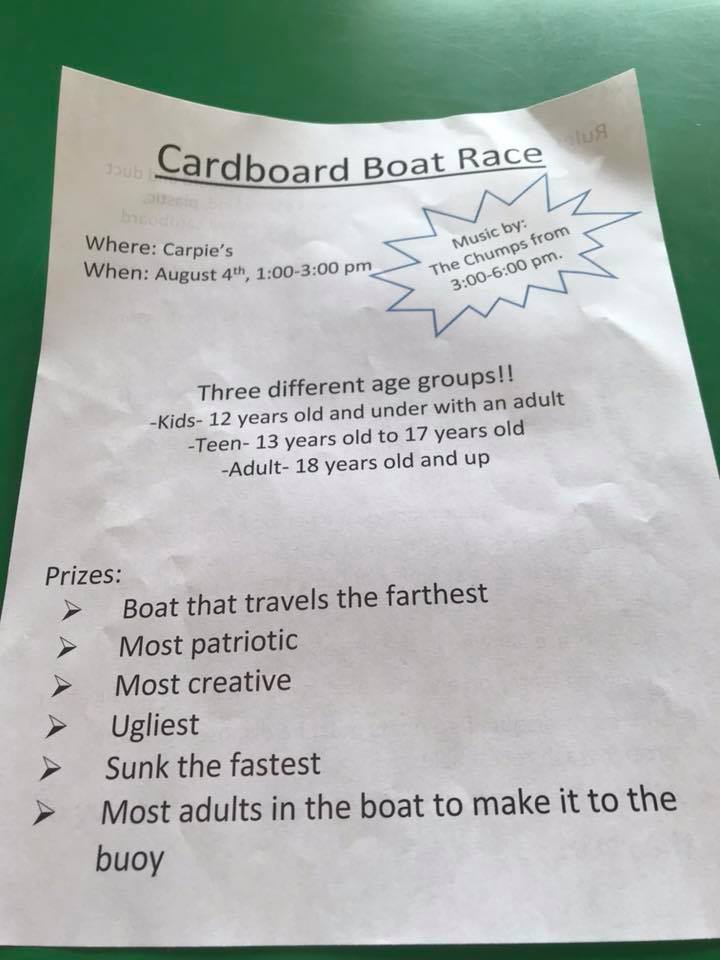 Cardboard Boat Race
Where: Carpie's
When: August 4th, 1:00-3:00 pm
Music by:
The Chumps from
3:00-6:00 pm.
Three different age groups!!
-Kids- 12 years old and under with an adult
-Teen- 13 years old to 17 years old
-Adult- 18 years old and up
Prizes:
➢ Boat that travels the farthest
➢ Most patriotic
➢ Most creative
➢ Ugliest
➢ Sunk the fastest
➢ Most adults in the boat to make it to the
buoy